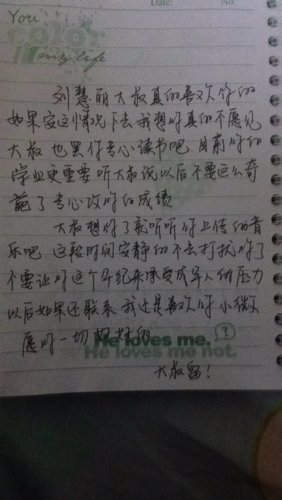 You
Date:
No:
color
my life
刘慧丽大叔真的喜欢你的
如果安这情况下去我想你真的不愿见
大叔也罢你专心读书吧目前你的
学业更重要听大叔说以后不要这么奇
葩了专心改你的成绩
大叔想你了就听听你上传的音
乐吧这段时间安静的不去打扰你了
不要让你这个年纪来承受成年人的压力
以后如果还联系我还是喜欢你小倩
愿你一切都好的
He loves me.
He loves me not.
大叔留！